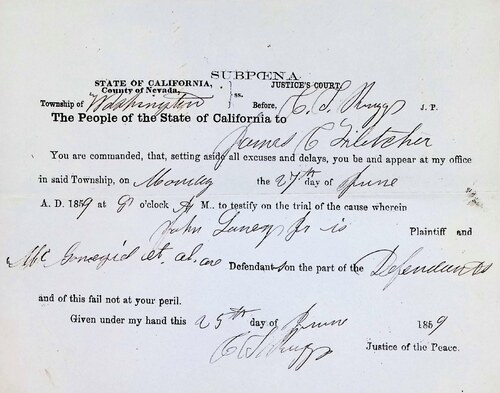 SUBPŒNA.
STATE OF CALIFORNIA, JUSTICE'S COURT,
County of Nevada, ss.
Township of Washington Before, C. S. Ruggs J. P.
The People of the State of California to
James C Fletcher
You are commanded, that, setting aside all excuses and delays, you be and appear at my office
in said Township, on Monday the 27th day of June
A. D. 1859 at 9 o'clock A M., to testify on the trial of the cause wherein
John Jr is Plaintiff and
et. al. are Defendant on the part of the Defendants
and of this fail not at your peril.
Given under my hand this 25th day of June 1859
C S Ruggs Justice of the Peace.